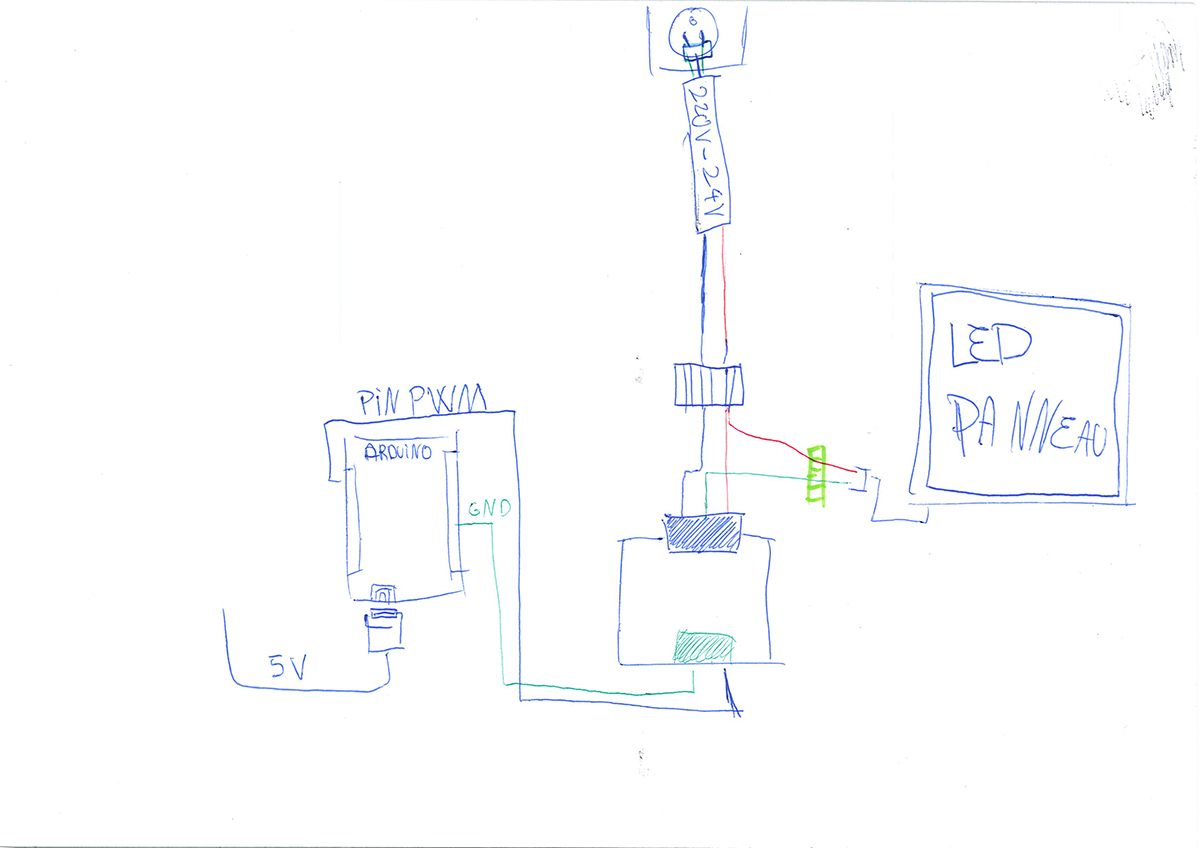 220V-24V
LED
PANNEAU
PiN PWM
ARDUINO
GND
5V